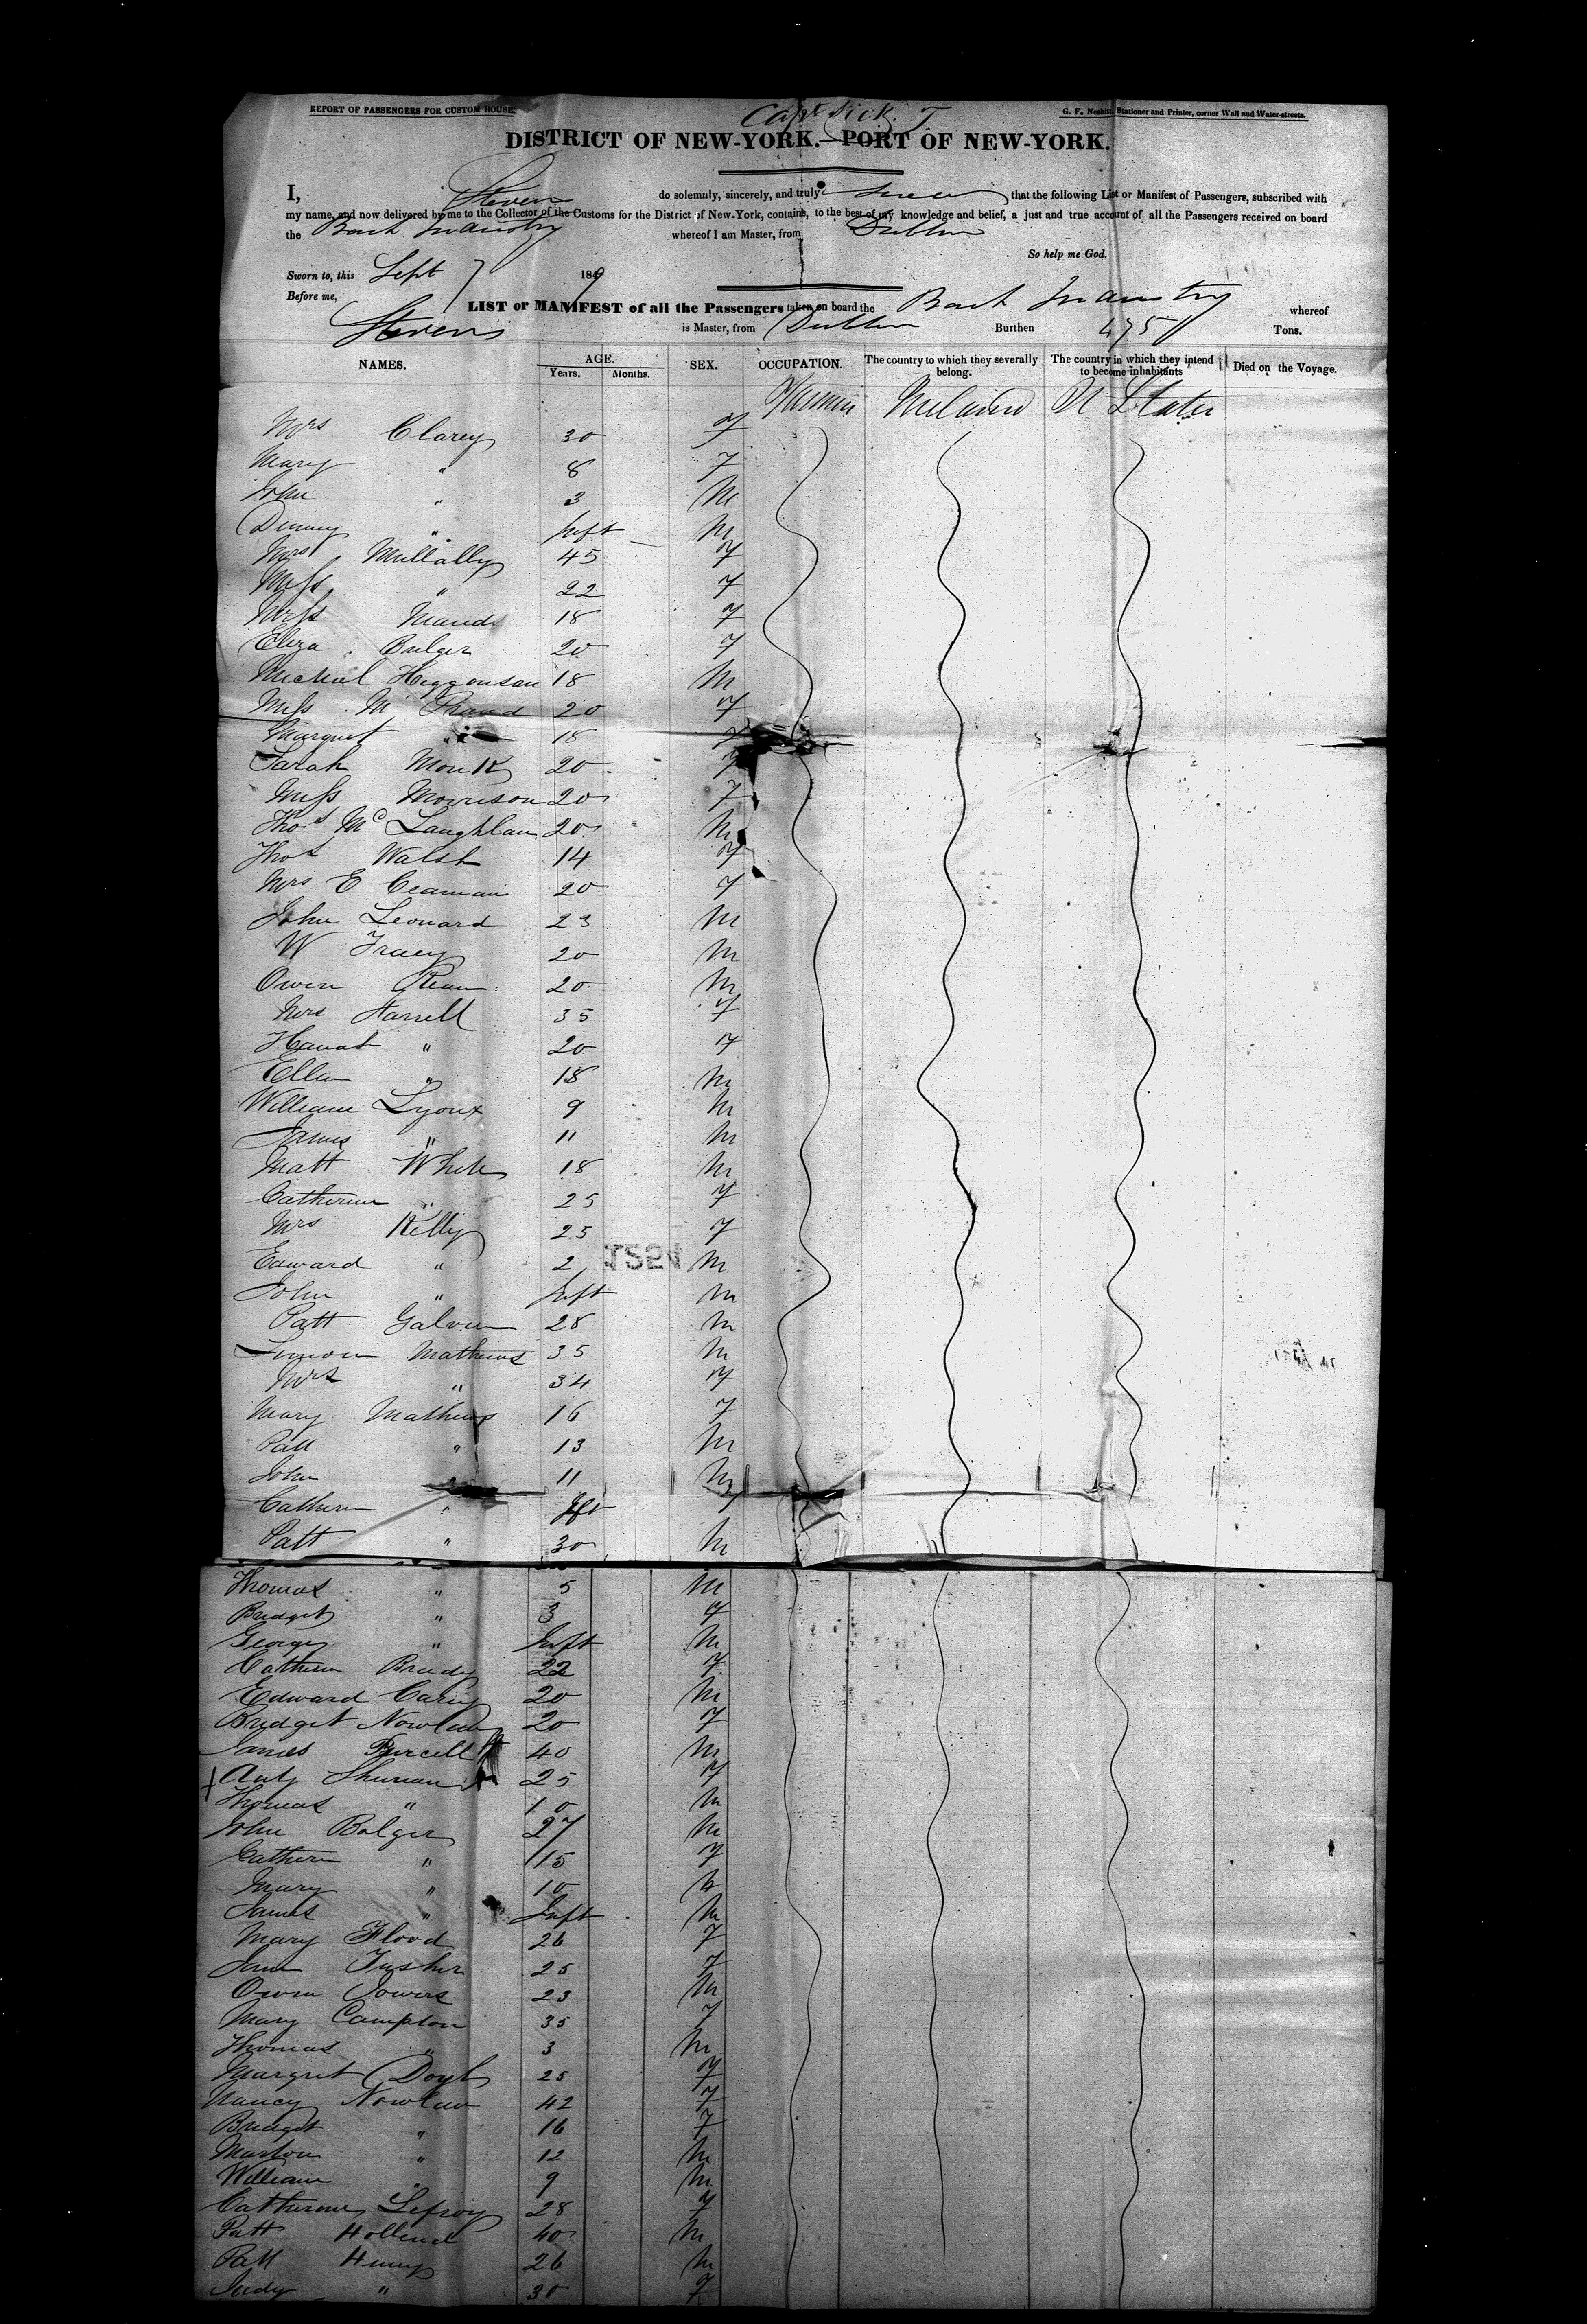 REPORT OF PASSENGERS FOR CUSTOM HOUSE.
G. F. Nesbitt, Stationer and Printer, corner Wall and Water-streets.
Capt Sick.
DISTRICT OF NEW-YORK.—PORT OF NEW-YORK.
I, Stevens do solemnly, sincerely, and truly swear that the following List or Manifest of Passengers, subscribed with
my name, and now delivered by me to the Collector of the Customs for the District of New-York, contains, to the best of my knowledge and belief, a just and true account of all the Passengers received on board
the Bark Industry whereof I am Master, from Dublin
So help me God.
Sworn to, this Sept 7 1849
Before me,
LIST or MANIFEST of all the Passengers taken on board the Bark Industry whereof
Stevens is Master, from Dublin Burthen 475 Tons.
NAMES. AGE. Years. Months. SEX. OCCUPATION. The country to which they severally belong. The country in which they intend to become inhabitants Died on the Voyage.
U States
Mrs Clarey 30 f
Mary " 8 f
John " 3 M
Denny " Inft M
Mrs Mullally 45 f
Miss " 22 f
Miss 18 f
Eliza Bulger 20 f
Micheal Higgonson 18 M
Miss M 20 f
Margret " 18 f
Sarah Monk 20 f
Miss Morrison 20 f
Thos Mc Laughlan 20 M
Thos Walsh 14 f
Mrs E 20 f
John Leonard 23 M
W Tracy 20 M
Owen 20 M
Mrs Farrell 35 f
Hanah " 20 f
Ellen " 18 M
William Lyons 9 M
James " 11 M
Matt White 18 M
Catherine " 25 f
Mrs Kelly 25 f
Edward " 2 M
John " Inft M
Patt Galvin 28 M
Simon Mathews 35 M
Mrs " 34 f
Mary Mathews 16 f
Patt " 13 M
John " 11 M
Cathern " Inft f
Patt " 30 M
Thomas " 5 M
Bridget " 3 f
George " Inft M
Cathern Brady 22 f
Edward Carey 20 M
Bridget Nowlan 20 f
James Purcell 40 M
Anty 25 f
Thomas " 10 M
John Bolger 27 M
Cathern " 15 f
Mary " 10
James " Inft M
Mary Flood 26 f
Jane 25 f
Owen 23 M
Mary Campton 35 f
Thomas " 3 M
Margret Doyle 25 f
Nancy Nowlan 42 f
Bridget " 16 f
Marton " 12 M
William " 9 M
Catherine Lefroy 28 f
Patt Hollend 40 M
Patt Henry 26 M
Judy " 30 f